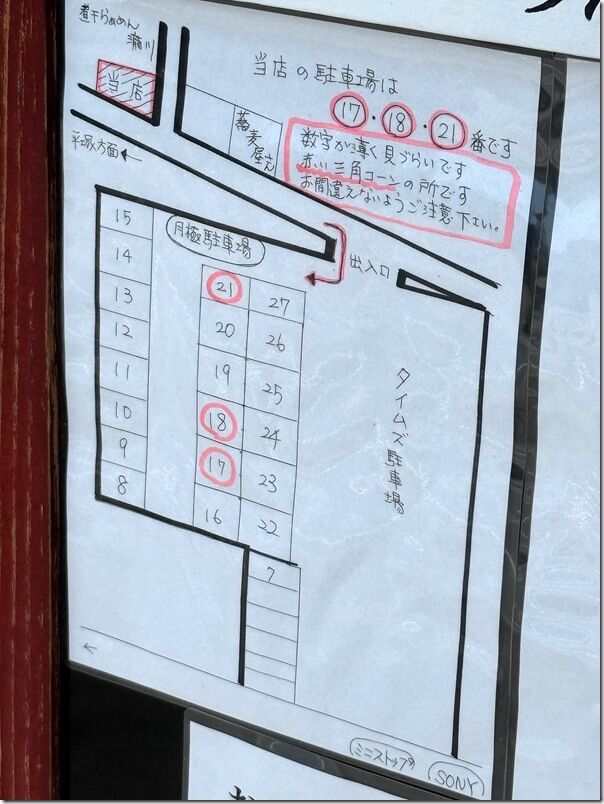 煮干らぁめん
当店
当店の駐車場は
17・18・21番です
数字が薄く見づらいです
赤い三角コーンの所です
お間違えないようご注意下さい。
蕎麦屋さん
平塚方面←
月極駐車場
出入口
15
14
13
12
11
10
9
8
21
20
19
18
17
16
27
26
25
24
23
22
7
タイムズ駐車場
ミニストップ
SONY